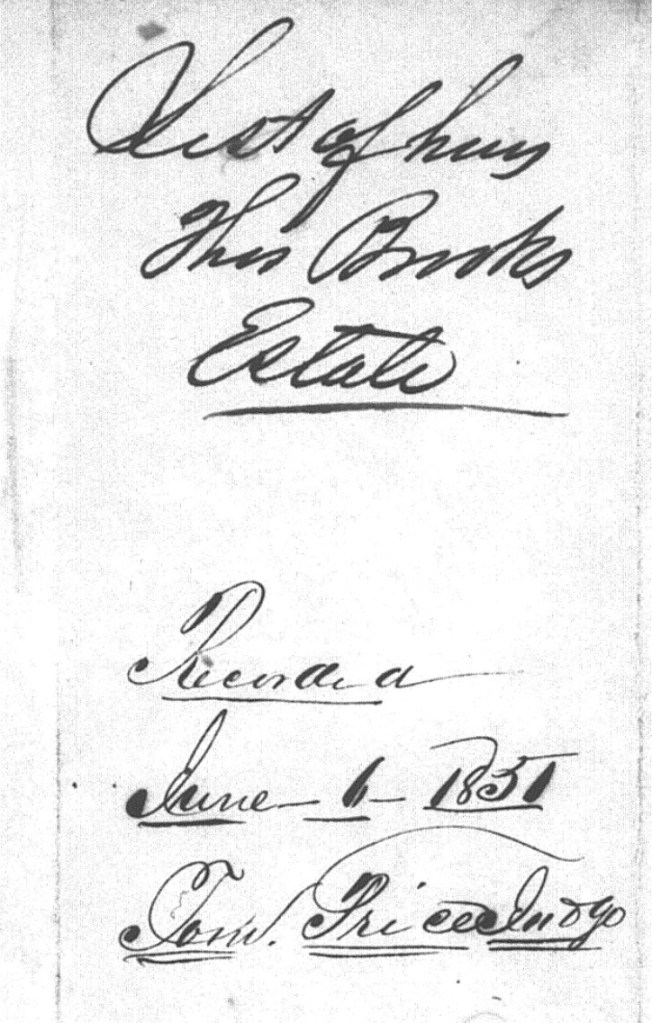 List of heirs
Thos Brooks
Estate
Recorded
June - 1 - 1851
Price Judge